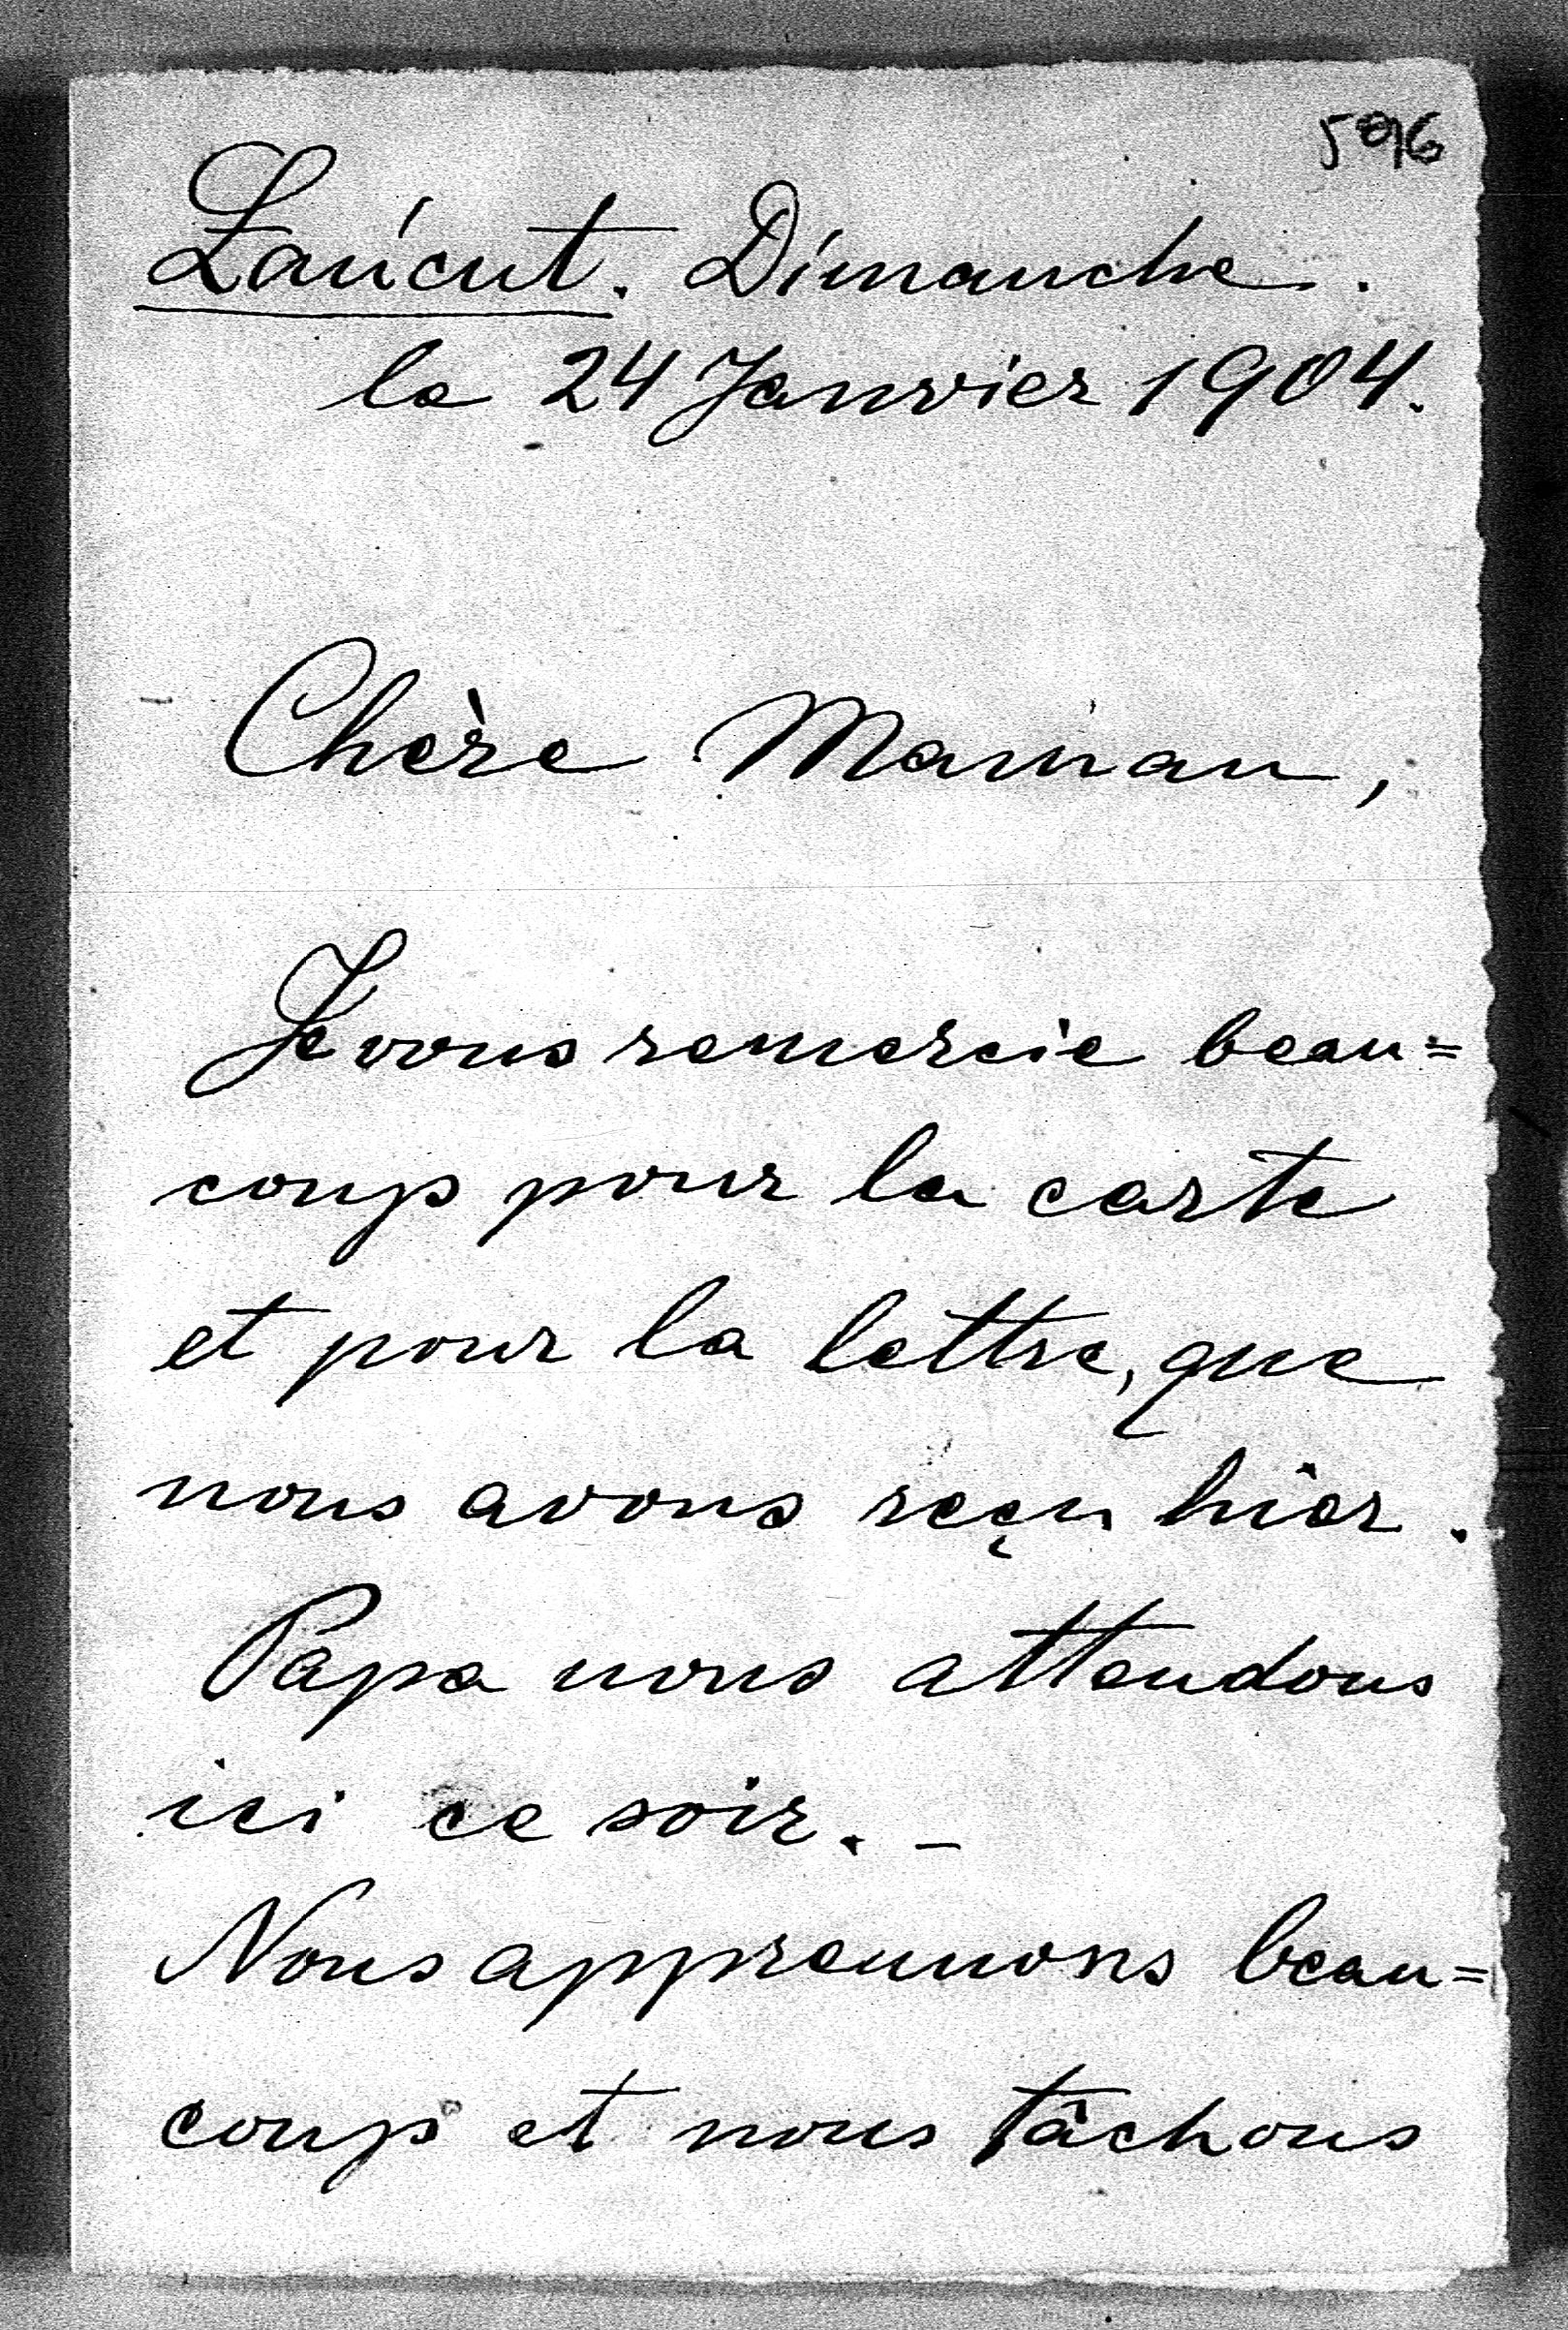 596
Łańcut. Dimanche.
le 24 Janvier 1904.
Chère Maman,
Je vous remercie beau=
coup pour la carte
et pour la lettre, que
nous avons reçu hier.
Papa nous attendons
ici ce soir. -
Nous apprennons beau=
coup et nous tâchons